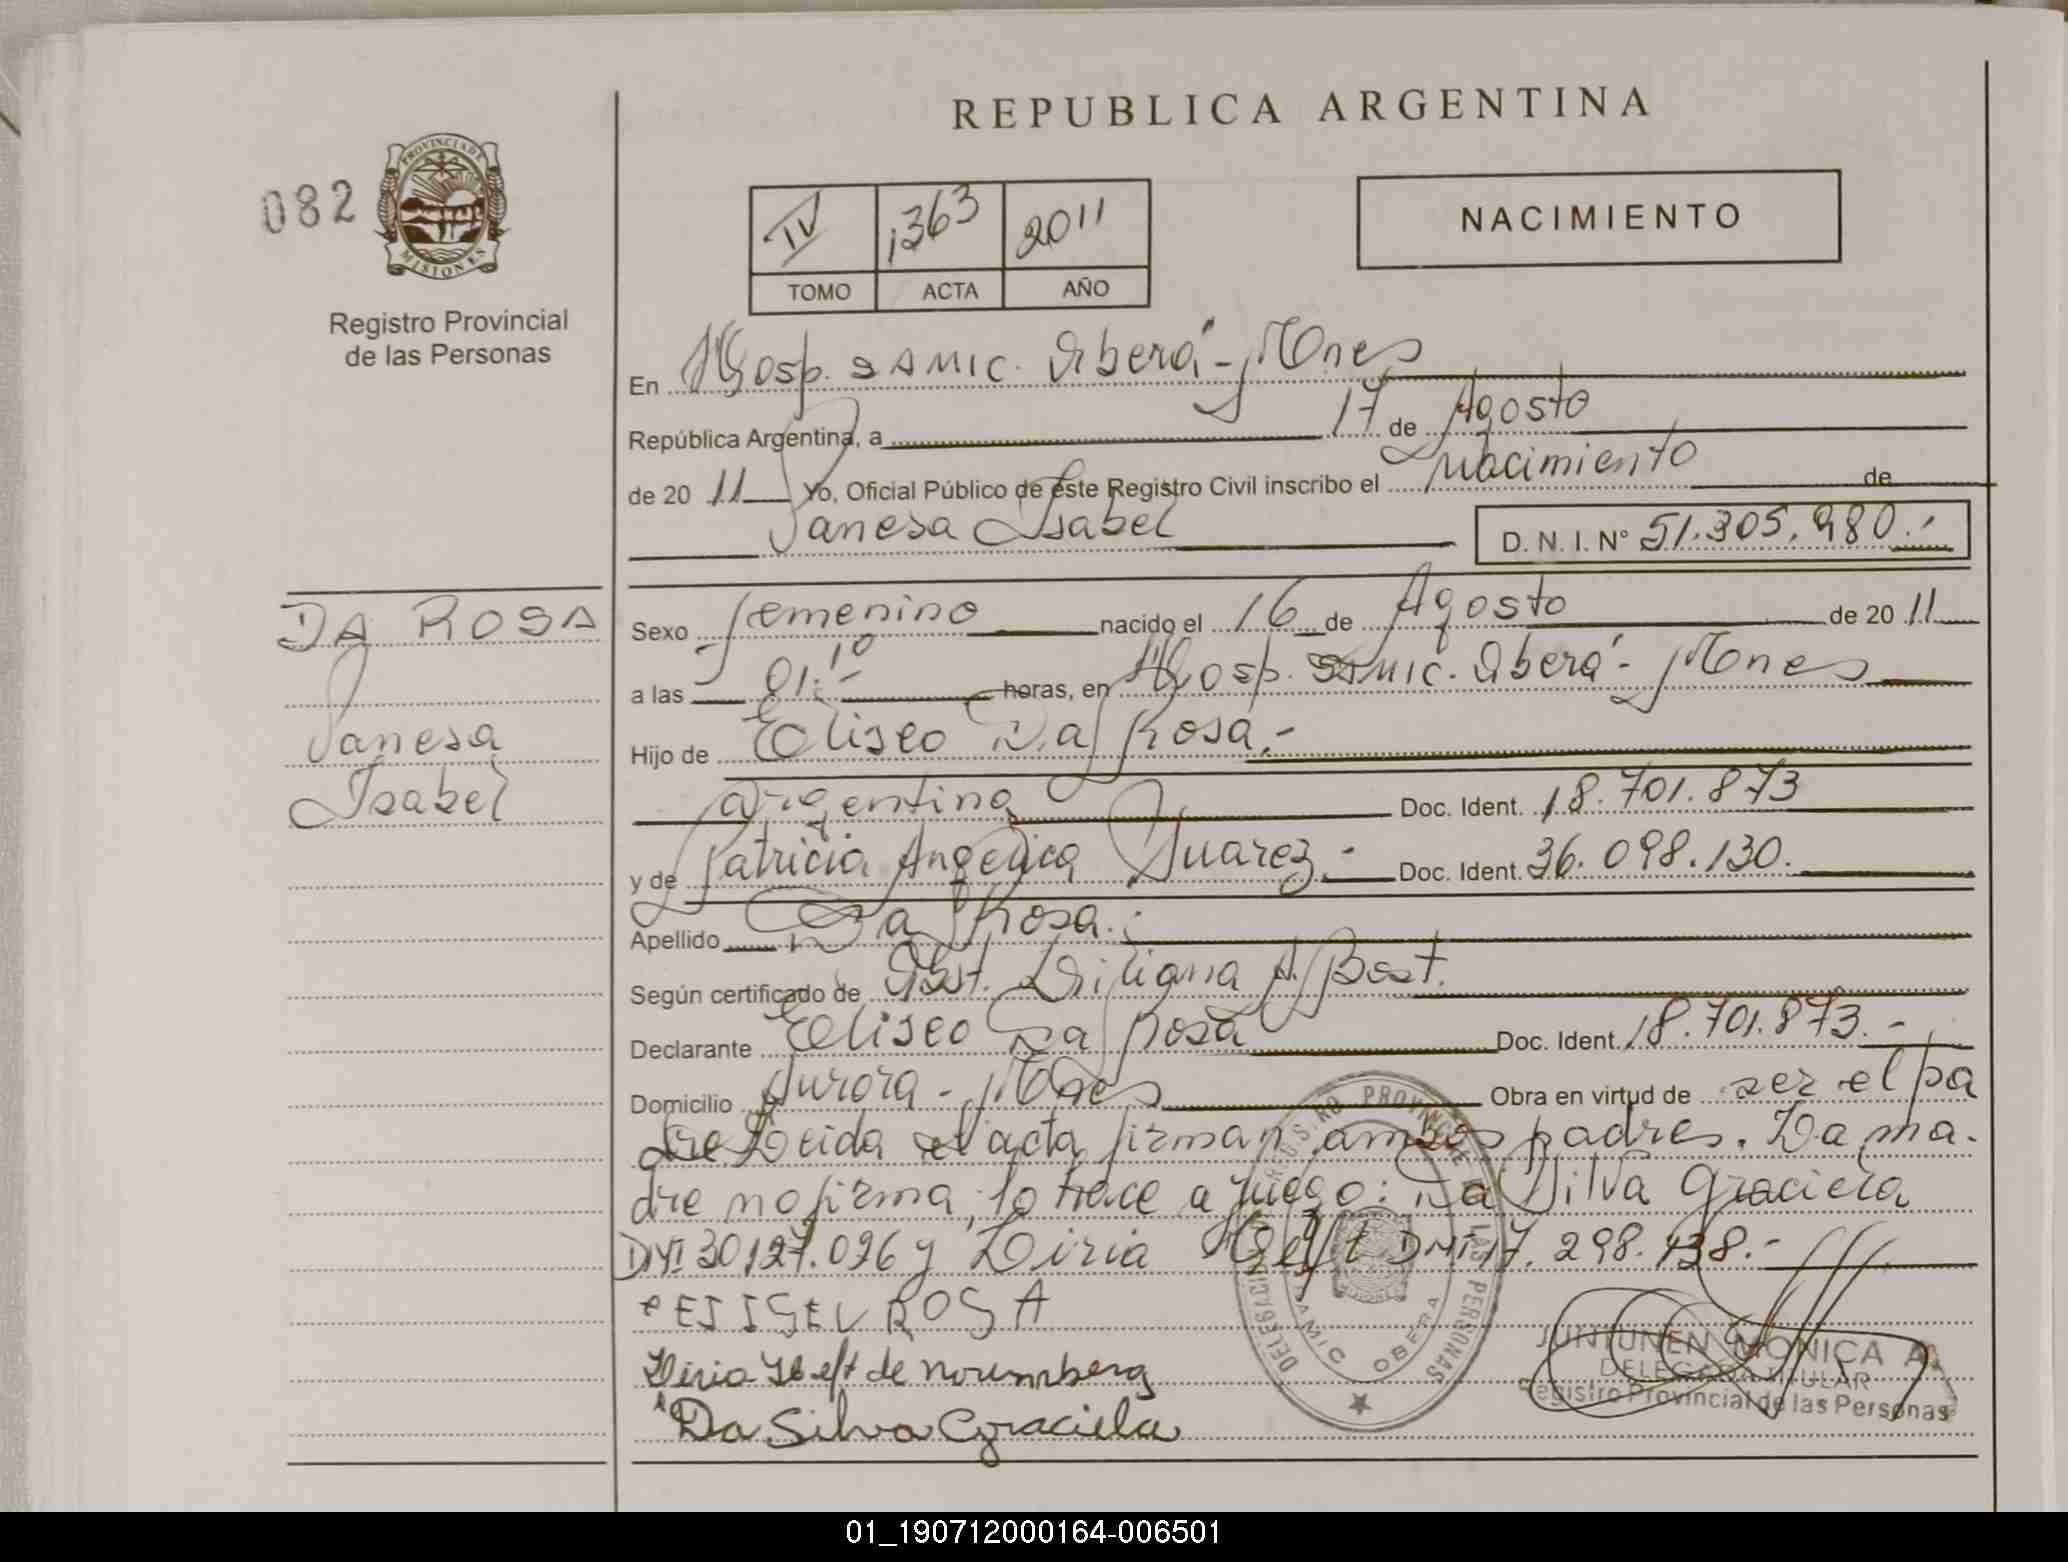 REPUBLICA ARGENTINA
082
PROVINCIA DE
MISIONES
Registro Provincial
de las Personas
IV 1363 2011
TOMO ACTA AÑO
NACIMIENTO
En Hosp. SAMIC. Oberá - Mnes
República Argentina, a 17 de Agosto
de 20 11 Yo, Oficial Público de este Registro Civil inscribo el Nacimiento de
Vanesa Isabel D. N. I. N° 51.305.980.-
DA ROSA
Vanesa
Isabel
Sexo femenino nacido el 16 de Agosto de 20 11
a las 01:10 horas, en Hosp. SAMIC. Oberá - Mnes
Hijo de Eliseo Da Rosa.-
argentino Doc. Ident. 18.701.873
y de Patricia Angelica Juarez.- Doc. Ident. 36.098.130.
Apellido Da Rosa.-
Según certificado de Obst. Liliana A. Bost.
Declarante Eliseo Da Rosa Doc. Ident. 18.701.873.-
Domicilio Aurora - Mnes Obra en virtud de ser el pa
dre Leida el acta firman ambos padres. La ma-
dre no firma, lo hace a ruego: Da Silva Graciela
DNI 30.127.096 y Liria Heft DNI 17.298.138.-
ROSA
Liria Heft de
Da Silva Graciela
REGISTRO PROVINCIAL DE LAS PERSONAS
DELEGACION
SAMIC OBERA
JUNTUNEN MONICA A.
DELEGADA TITULAR
Registro Provincial de las Personas
01_190712000164-006501